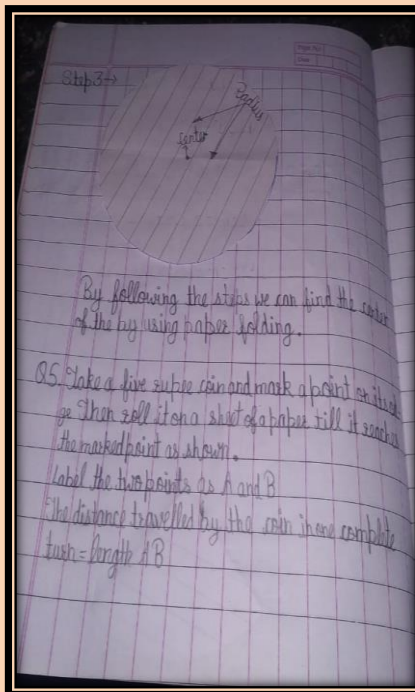 Step 3→
Radius
Center
By following the steps we can find the center
of the by using paper folding.
Q5. Take a five rupee coin and mark a point on its ed-
ge Then roll it on a sheet of a paper till it reaches
the marked point as shown.
Label the two points as A and B
The distance travelled by the coin in one complete
turn = length AB